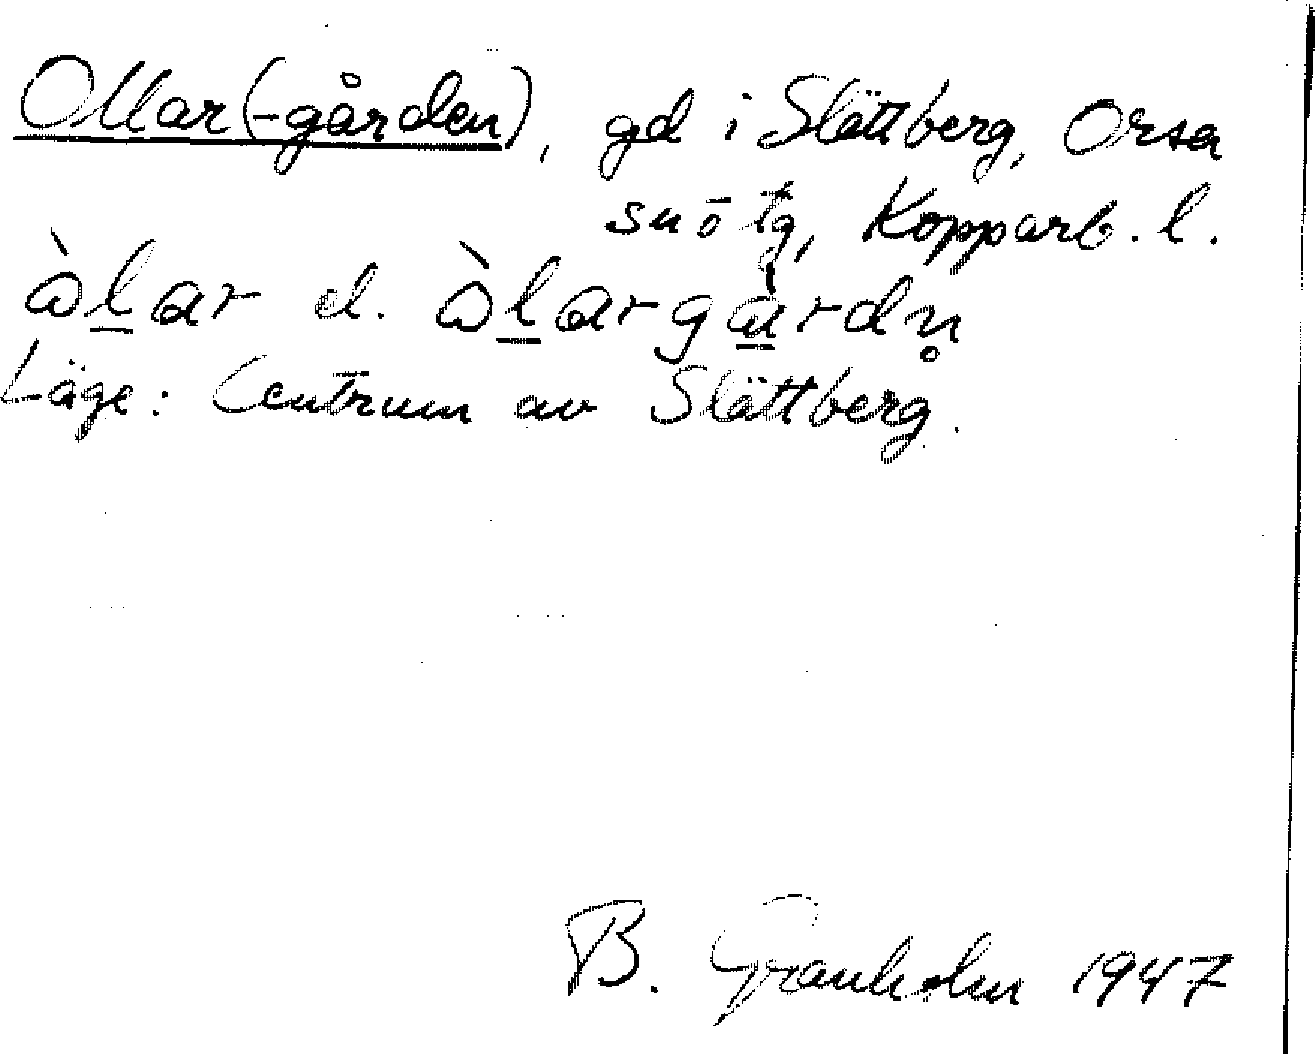 Ollar(-gården), gd i Slättberg, Orsa
sn o tg, Kopparb. l.
ɷ̀l̠ar el. ɷ̀l̠argà̠rdn̥
Läge: Centrum av Slättberg.
B. Granholm 1947